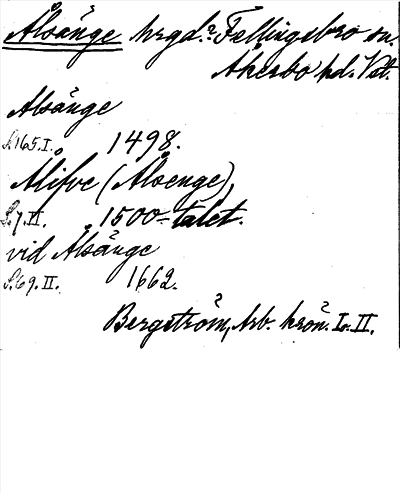 Ålsänge hrgd. Fellingsbro sn.
Åkerbo hd. Vstl.
Alsänge
S. 165. I. 1498.
Ålifve (Ålsenge)
S. 7. II. 1500-talet.
vid Ålsänge
S. 69. II. 1662.
Bergström, Arb. krön. I. II.